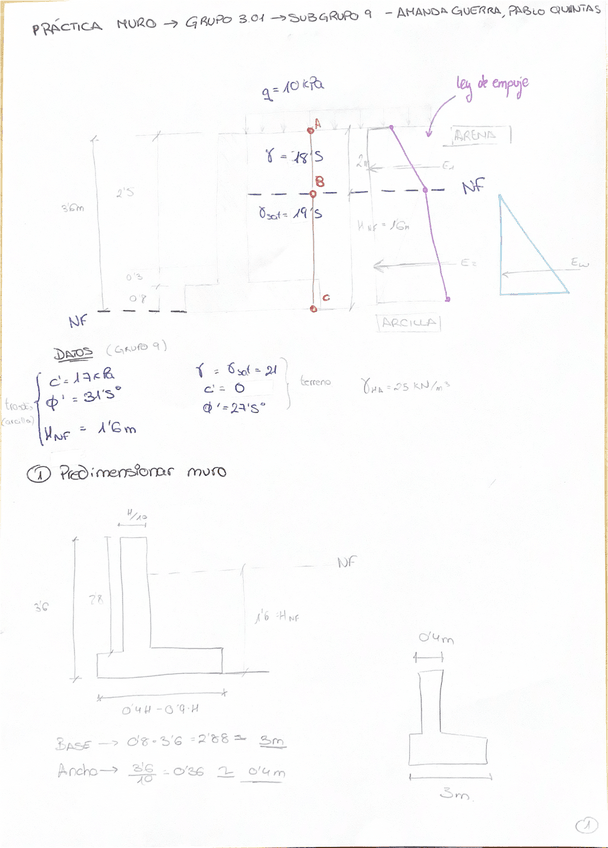 PRÁCTICA MURO → GRUPO 3.01 → SUBGRUPO 9 - AMANDA GUERRA, PABLO QUINTAS
q = 10 kPa
ley de empuje
A
ARENA
γ = 18'5
2m
E₁
B
NF
γsat = 19'5
3'6m
2'5
HNF = 1'6m
E₂
Ew
0'3
0'8
C
NF
ARCILLA
DATOS (GRUPO 9)
c' = 17 kPa
ϕ' = 31'5°
HNF = 1'6 m
trasdós
(arcilla)
γ = γsat = 21
c' = 0
ϕ' = 27'5°
terreno
γHA = 25 kN/m³
① Predimensionar muro
H/10
NF
3'6
2'8
1'6 = HNF
0'4H - 0'9·H
0'4m
BASE → 0'8 · 3'6 = 2'88 ≃ 3m
Ancho → 3'6/10 = 0'36 ≃ 0'4m
3m
1